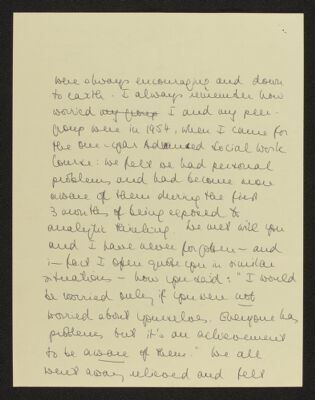 were always encouraging and down
to earth. I always remember how
worried my group I and my peer-
group were in 1954, when I came for
the one-year Advanced Social Work
Course: we felt we had personal
problems and had become more
aware of them during the first
3 months of being exposed to
analytic thinking. We met with you
and I have never forgotten - and
in fact I often quote you in similar
situations - how you said: "I would
be worried only if you were not
worried about yourselves. Everyone has
problems but it's an achievement
to be aware of them." We all
went away relieved and felt